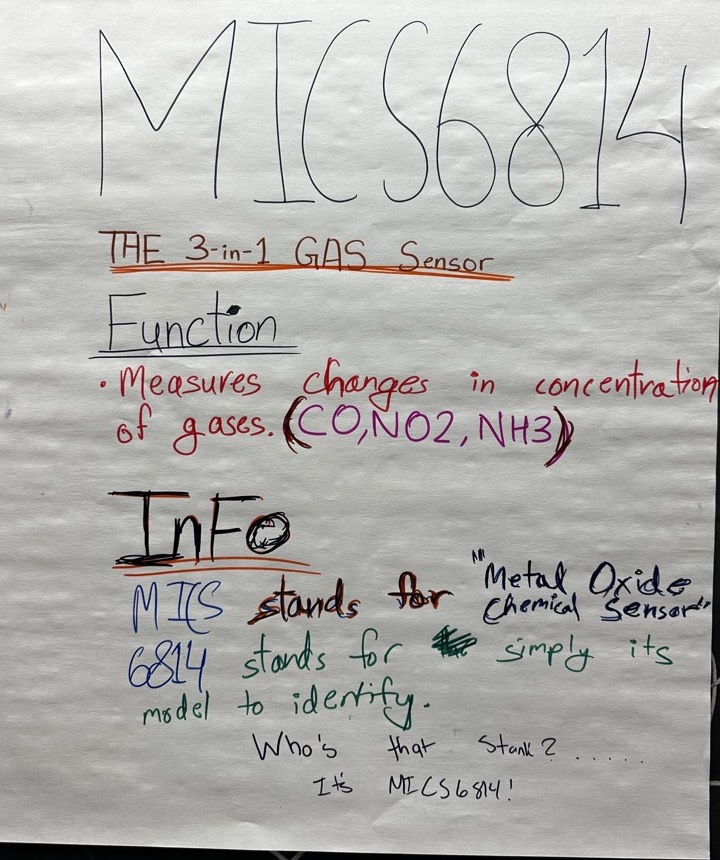 MICS6814
THE 3-in-1 GAS Sensor
Function
• Measures changes in concentration
of gases. (CO,NO2, NH3)
InFo
MICS stands for "Metal Oxide
Chemical Sensor"
6814 stands for simply its
model to identify.
Who's that Stank? ......
It's MICS6814!